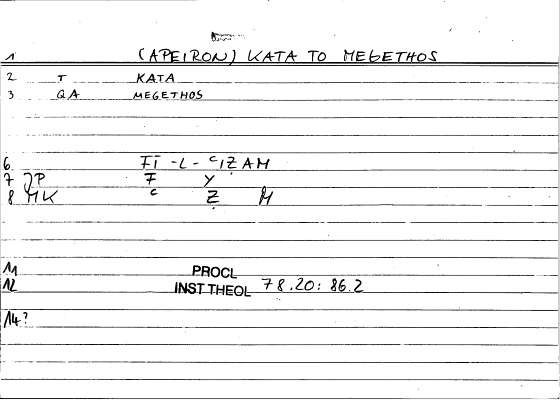 1 (APEIRON) KATA TO MEGETHOS
2 T KATA
3 QA MEGETHOS
6. FĪ -L- ᶜIẒAM
7 JP F Y
8 MK ᶜ Ẓ M
11 PROCL
12 INST THEOL 78.20: 86.2
14?